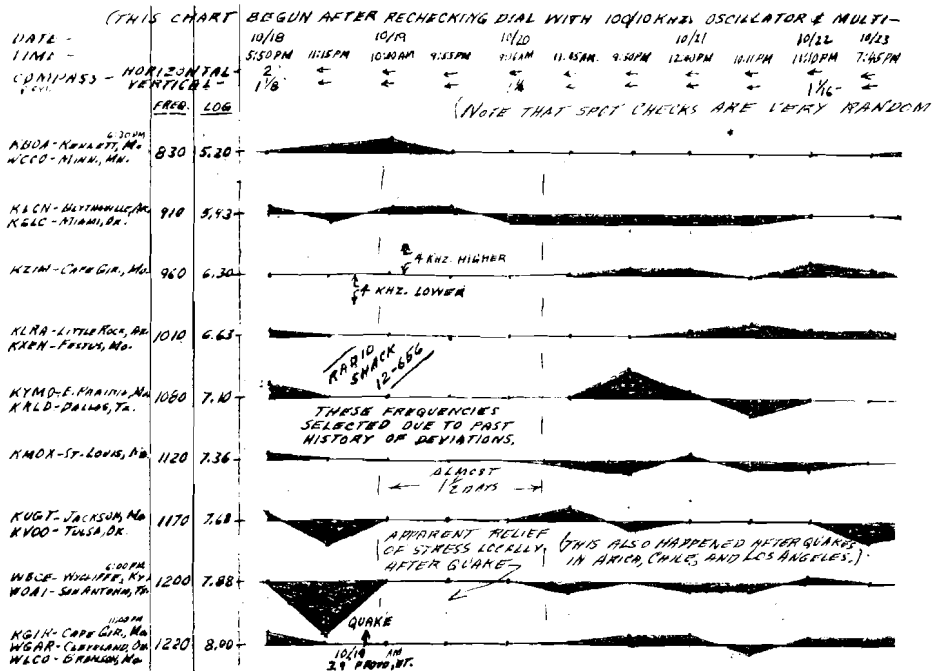 (THIS CHART BEGUN AFTER RECHECKING DIAL WITH 100/10 KHZ. OSCILLATOR & MULTI-
DATE - 10/18 10/19 10/20 10/21 10/22 10/23
TIME - 5:50PM 11:15PM 10:20AM 9:55PM 9:16AM 11:45AM 9:50PM 12:40PM 10:11PM 11:10PM 7:45PM
COMPASS - HORIZONTAL - 2 ← ← ← ← ← ← ← ← ← ←
VERTICAL - 1/8 ← ← ← ← ← ← ← 1/16 ←
FREQ. LOG
(NOTE THAT SPOT CHECKS ARE VERY RANDOM
6:30PM
KBOA - KENNETT, MO.
WCCO - MINN., MN.
830 5.20
KLCN - BLYTHEVILLE, AR.
KGLC - MIAMI, OK.
910 5.93
4 KHZ. HIGHER
KZIM - CAPE GIR., MO.
960 6.30
4 KHZ. LOWER
KLRA - LITTLE ROCK, AR.
KXEN - FESTUS, MO.
1010 6.63
RADIO
SHACK
12-656
KYMO - E. PRAIRIE, MO.
KRLD - DALLAS, TX.
1080 7.10
THESE FREQUENCIES
SELECTED DUE TO PAST
HISTORY OF DEVIATIONS.
KMOX - ST. LOUIS, MO.
1120 7.36
ALMOST
1 1/2 DAYS
KUGT - JACKSON, MO
KVOO - TULSA, OK.
1170 7.68
APPARENT RELIEF
OF STRESS LOCALLY
AFTER QUAKE
(THIS ALSO HAPPENED AFTER QUAKES
IN ARICA, CHILE, AND LOS ANGELES.)
6:00PM
WBCE - WYCLIFFE, KY
WOAI - SAN ANTONIO, TX.
1200 7.88
QUAKE
KGIR - CAPE GIR., MO.
WGAR - CLEVELAND, OH
WLCO - BRANSON, MO.
1220 8.00
10/19 AM
3.9 PROVO, UT.